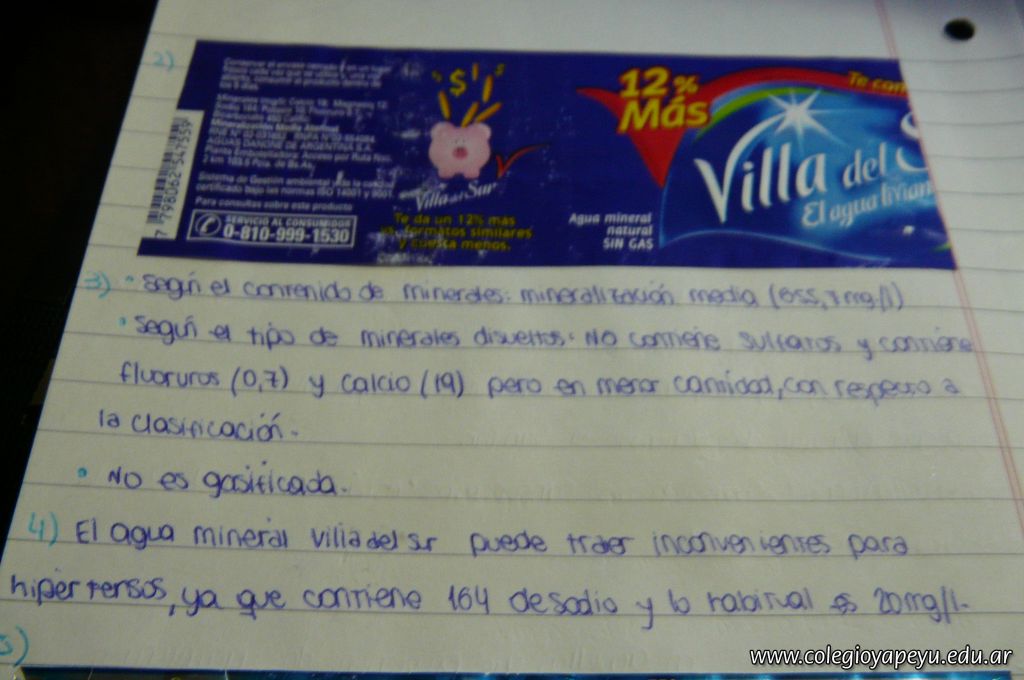 2)
Conservar el envase cerrado en un lugar
los 5 días.
Mineralización Media Alcalina
AGUAS DANONE DE ARGENTINA S.A.
Sistema de Gestión ambiental
certificado bajo las normas ISO 14001 y 9001
Para consultas sobre este producto
SERVICIO AL CONSUMIDOR
0-810-999-1530
7 798062 547559
$ $
Villa del Sur
Te da un 12% más
vs. formatos similares
y cuesta menos.
12%
Más
Te con
Villa del S
El agua livian
Agua mineral
natural
SIN GAS
3) • Según el contenido de minerales: mineralización media (655,7mg/l)
• Según el tipo de minerales disueltos: No contiene sulfatos y contiene
fluoruros (0,7) y calcio (19) pero en menor cantidad, con respecto a
la clasificación.
• No es gasificada.
4) El agua mineral villa del sur puede traer inconvenientes para
hipertensos, ya que contiene 164 de sodio y lo habitual es 20mg/l.
5)
www.colegioyapeyu.edu.ar